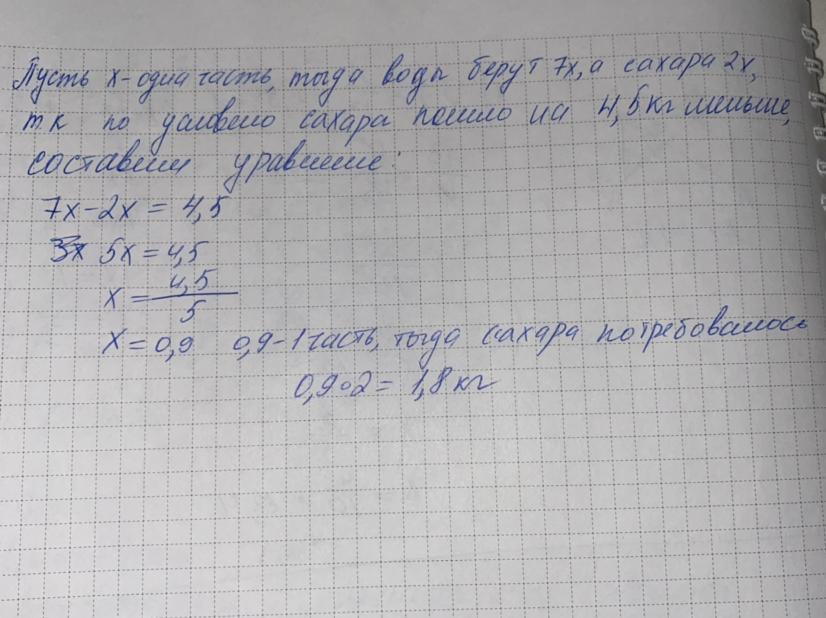 Пусть х - одна часть, тогда воды берут 7х, а сахара 2х,
т к по условию сахара пошло на 4,5 кг меньше,
составим уравнение:
7х-2х = 4,5
5х = 4,5
х = 4,5/5
х = 0,9 0,9 - 1 часть, тогда сахара потребовалось
0,9∘2 = 1,8 кг